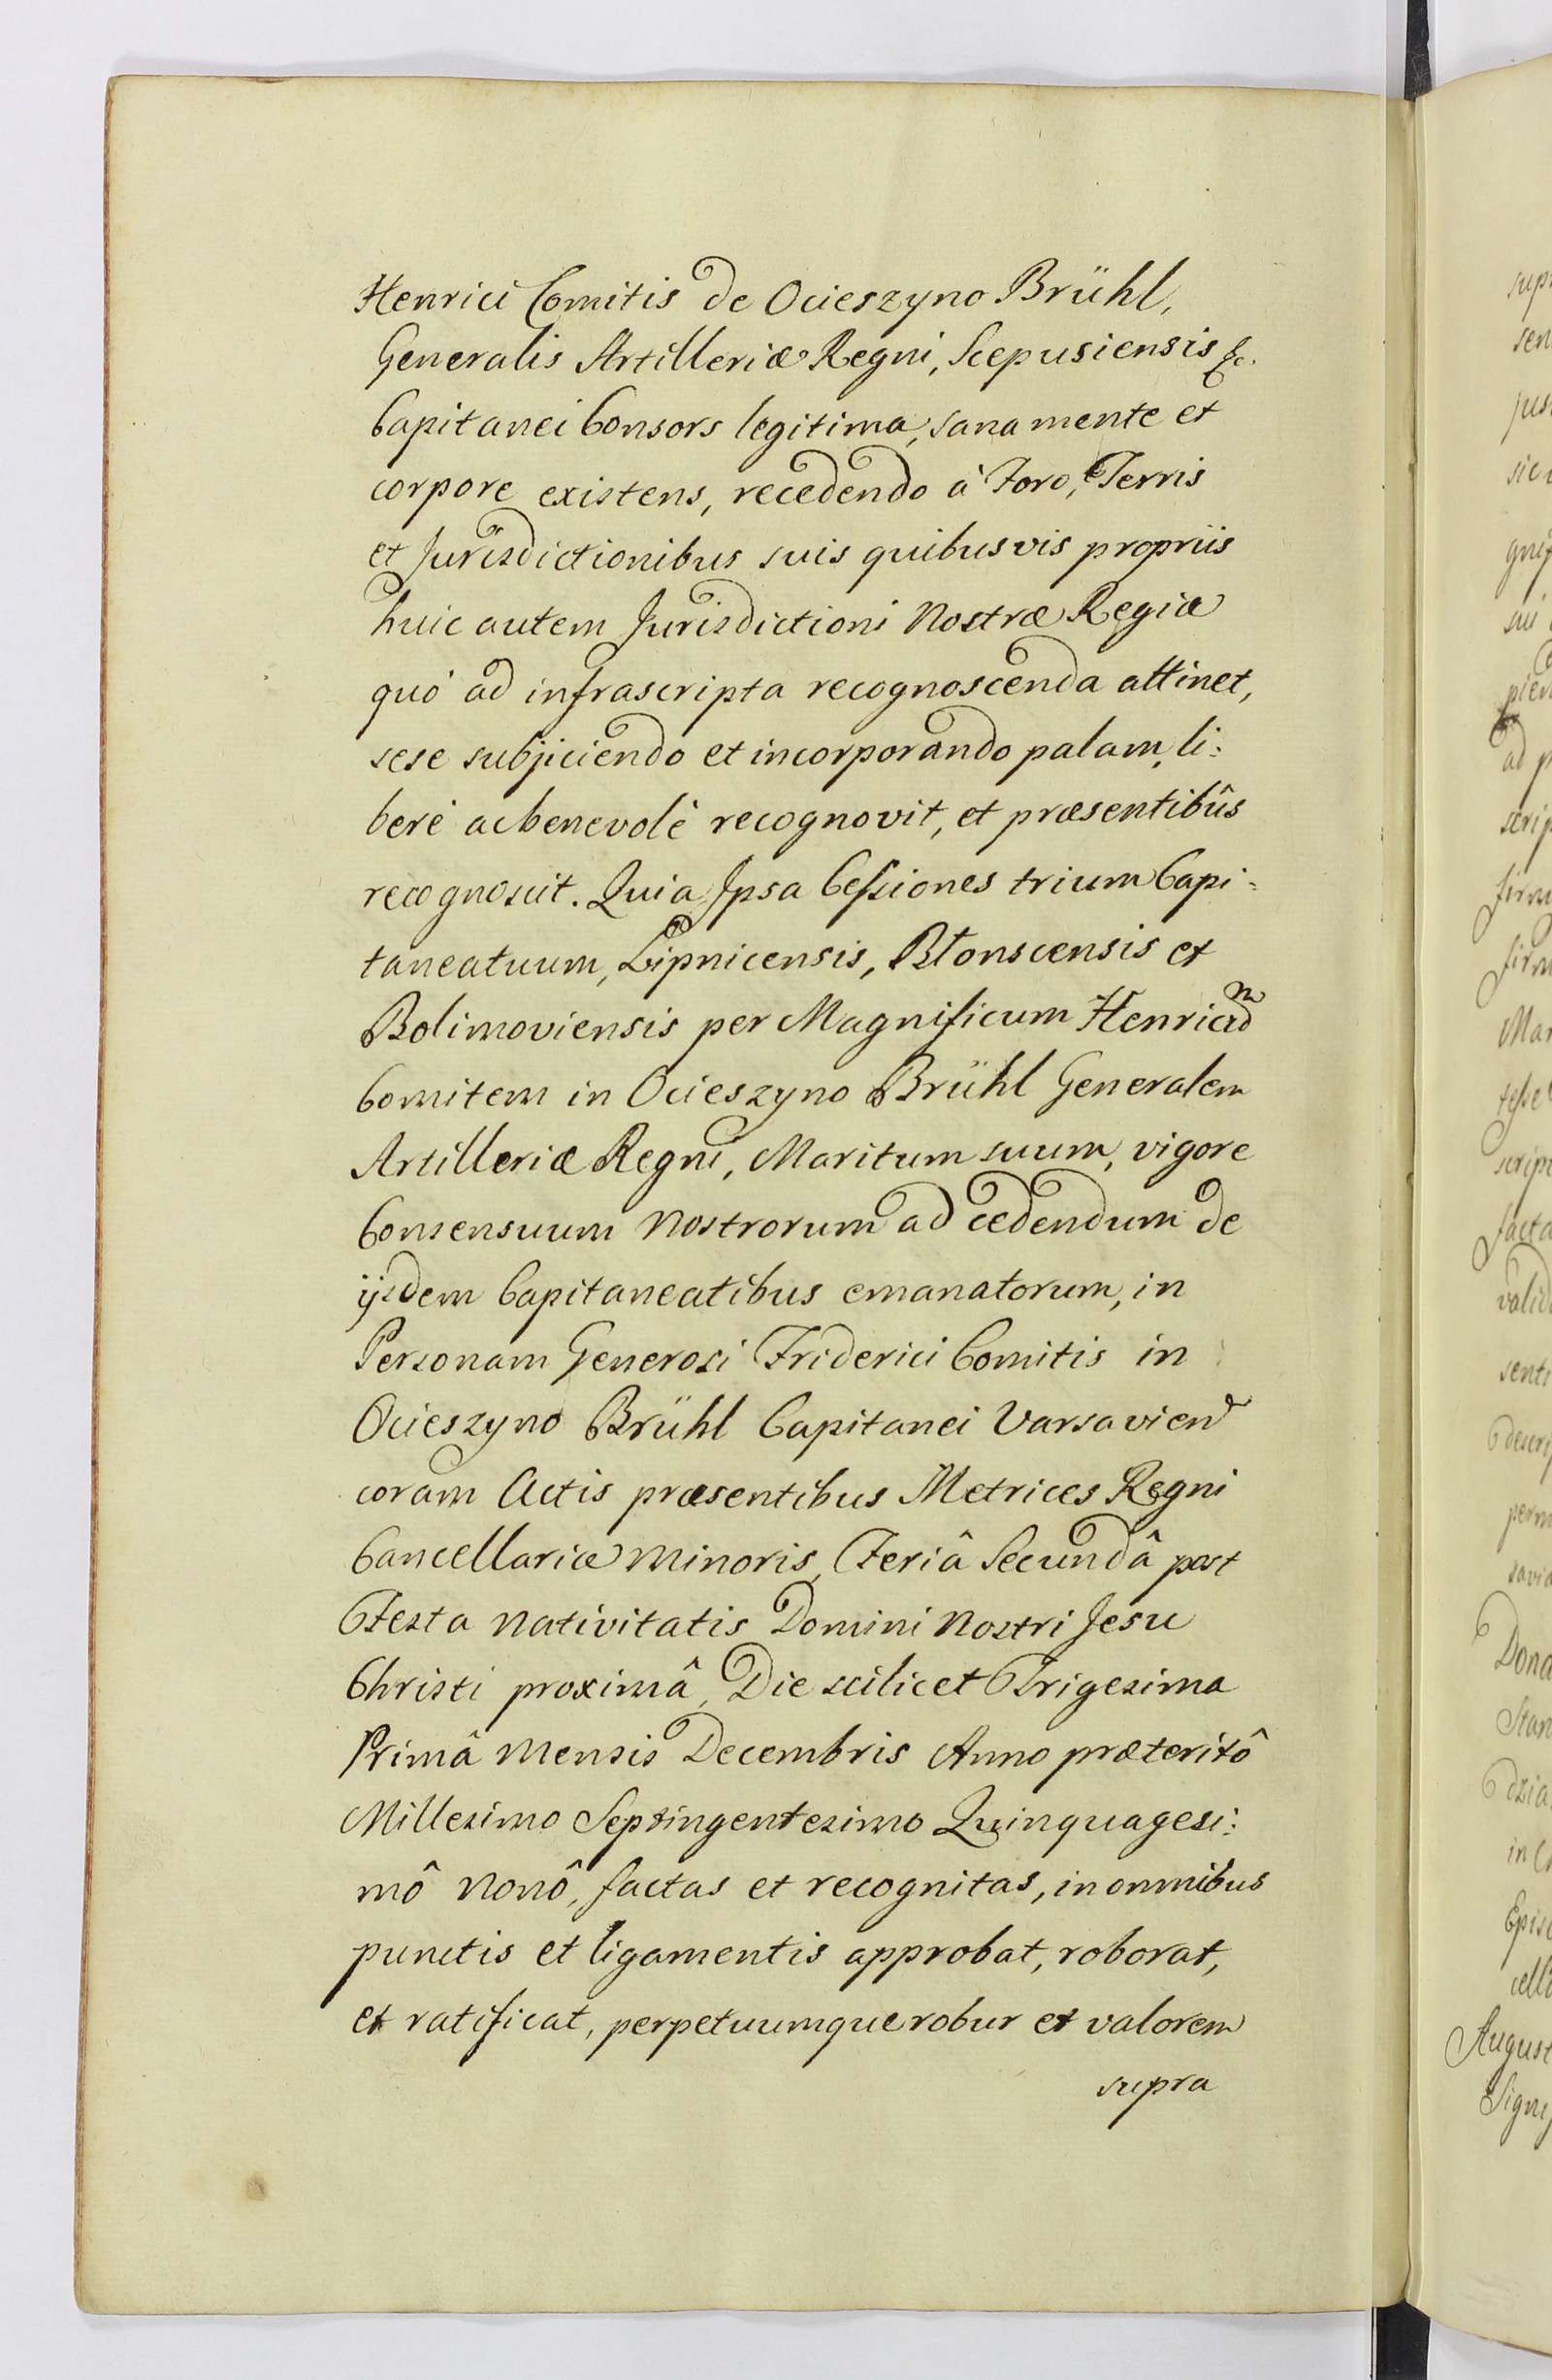 Henrici Comitis de Ocieszyno Brühl,
Generalis Artilleriæ Regni, Scepusiensis &c.
Capitanei Consors legitima, sana mente et
corpore existens, recedendo à Foro, Terris
et Jurisdictionibus suis quibusvis propriis
huic autem Jurisdictioni Nostræ Regiæ
quó ad infrascripta recognoscenda attinet,
sese subjiciendo et incorporando palam, li:
berè ac benevolè recognovit, et præsentibûs
recognoscit. Quia Ipsa Cessiones trium Capi:
taneatuum, Lipnicensis, Blonscensis et
Bolimoviensis per Magnificum Henricum
Comitem in Ocieszyno Brühl Generalem
Artilleriæ Regni, Maritum suum, vigore
Consensuum Nostrorum ad cedendum de
ijsdem Capitaneatibus emanatorum, in
Personam Generosi Friderici Comitis in
Ocieszyno Brühl Capitanei Varsavien
coram Actis præsentibus Metrices Regni
Cancellariæ Minoris, Feriâ Secundâ post
Festa Nativitatis Domini Nostri Jesu
Christi proximâ, Die scilicet Trigesima
Primâ Mensis Decembris Anno præteritô
Millesimo Septingentesimo Quinquagesi:
mô Nonô, factas et recognitas, in omnibus
punctis et ligamentis approbat, roborat,
et ratificat, perpetuumque robur et valorem
supra